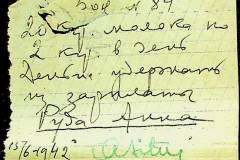 Бон № 84
20 кр. молока по
2 кр. в день
Деньги удержать
из зарплаты
Руза Анна
15/6-1942